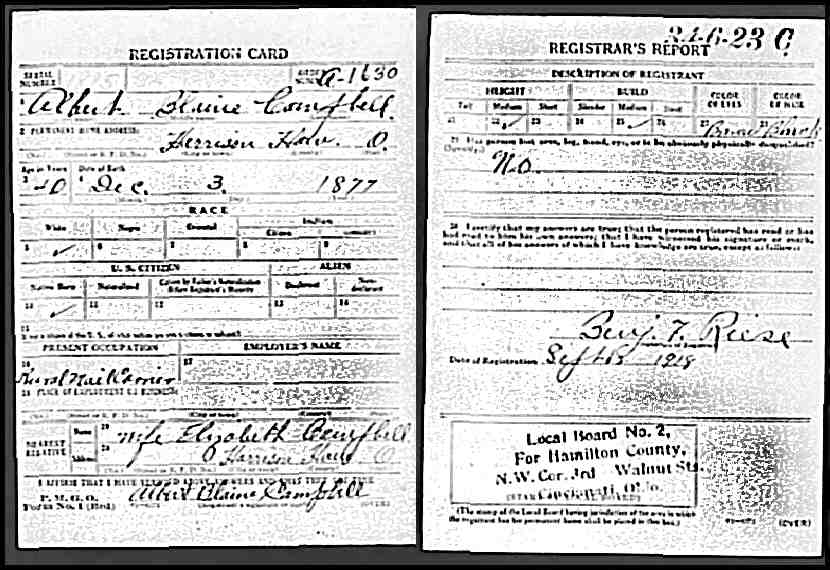 REGISTRATION CARD
SERIAL NUMBER
ORDER NUMBER A-1630
1 Albert Blaine Campbell
2 PERMANENT HOME ADDRESS:
Harrison Ham. O.
Age in Years
Date of Birth
Dec. 3. 1877
RACE
White Negro Oriental Indian
Citizen
5 ✓ 6 7 8 9
U. S. CITIZEN ALIEN
Native Born Naturalized Citizen by Father's Naturalization Before Registrant's Majority Declarant Non-declarant
10 ✓ 11 12 13 14
15
PRESENT OCCUPATION EMPLOYER'S NAME
16 17
Rural Mail Carrier
18 PLACE OF EMPLOYMENT OR BUSINESS:
NEAREST RELATIVE
Name 19 Wife Elizabeth Campbell
Address 20 Harrison Ham O
I AFFIRM THAT I HAVE VERIFIED ABOVE ANSWERS AND THAT THEY ARE TRUE
P. M. G. O.
Form No. 1 (Red)
Albert Blaine Campbell
(OVER)
34-6-23 C
REGISTRAR'S REPORT
DESCRIPTION OF REGISTRANT
HEIGHT BUILD COLOR OF EYES COLOR OF HAIR
Tall Medium Short Slender Medium Stout
21 22 ✓ 23 24 25 ✓ 26 27 Brown 28 Black
29 Has person lost arm, leg, hand, eye, or is he obviously physically disqualified?
(Specify.)
No.
30 I certify that my answers are true; that the person registered has read or has
had read to him his own answers; that I have witnessed his signature or mark,
and that all of his answers of which I have knowledge are true, except as follows:
Benj. F. Riese
Date of Registration Sept 1918
Local Board No. 2,
For Hamilton County,
N.W. Cor. 3rd Walnut Sts.
Cincinnati, Ohio.
(The stamp of the Local Board having jurisdiction of the area in which
the registrant has his permanent home shall be placed in this box.)
(OVER)